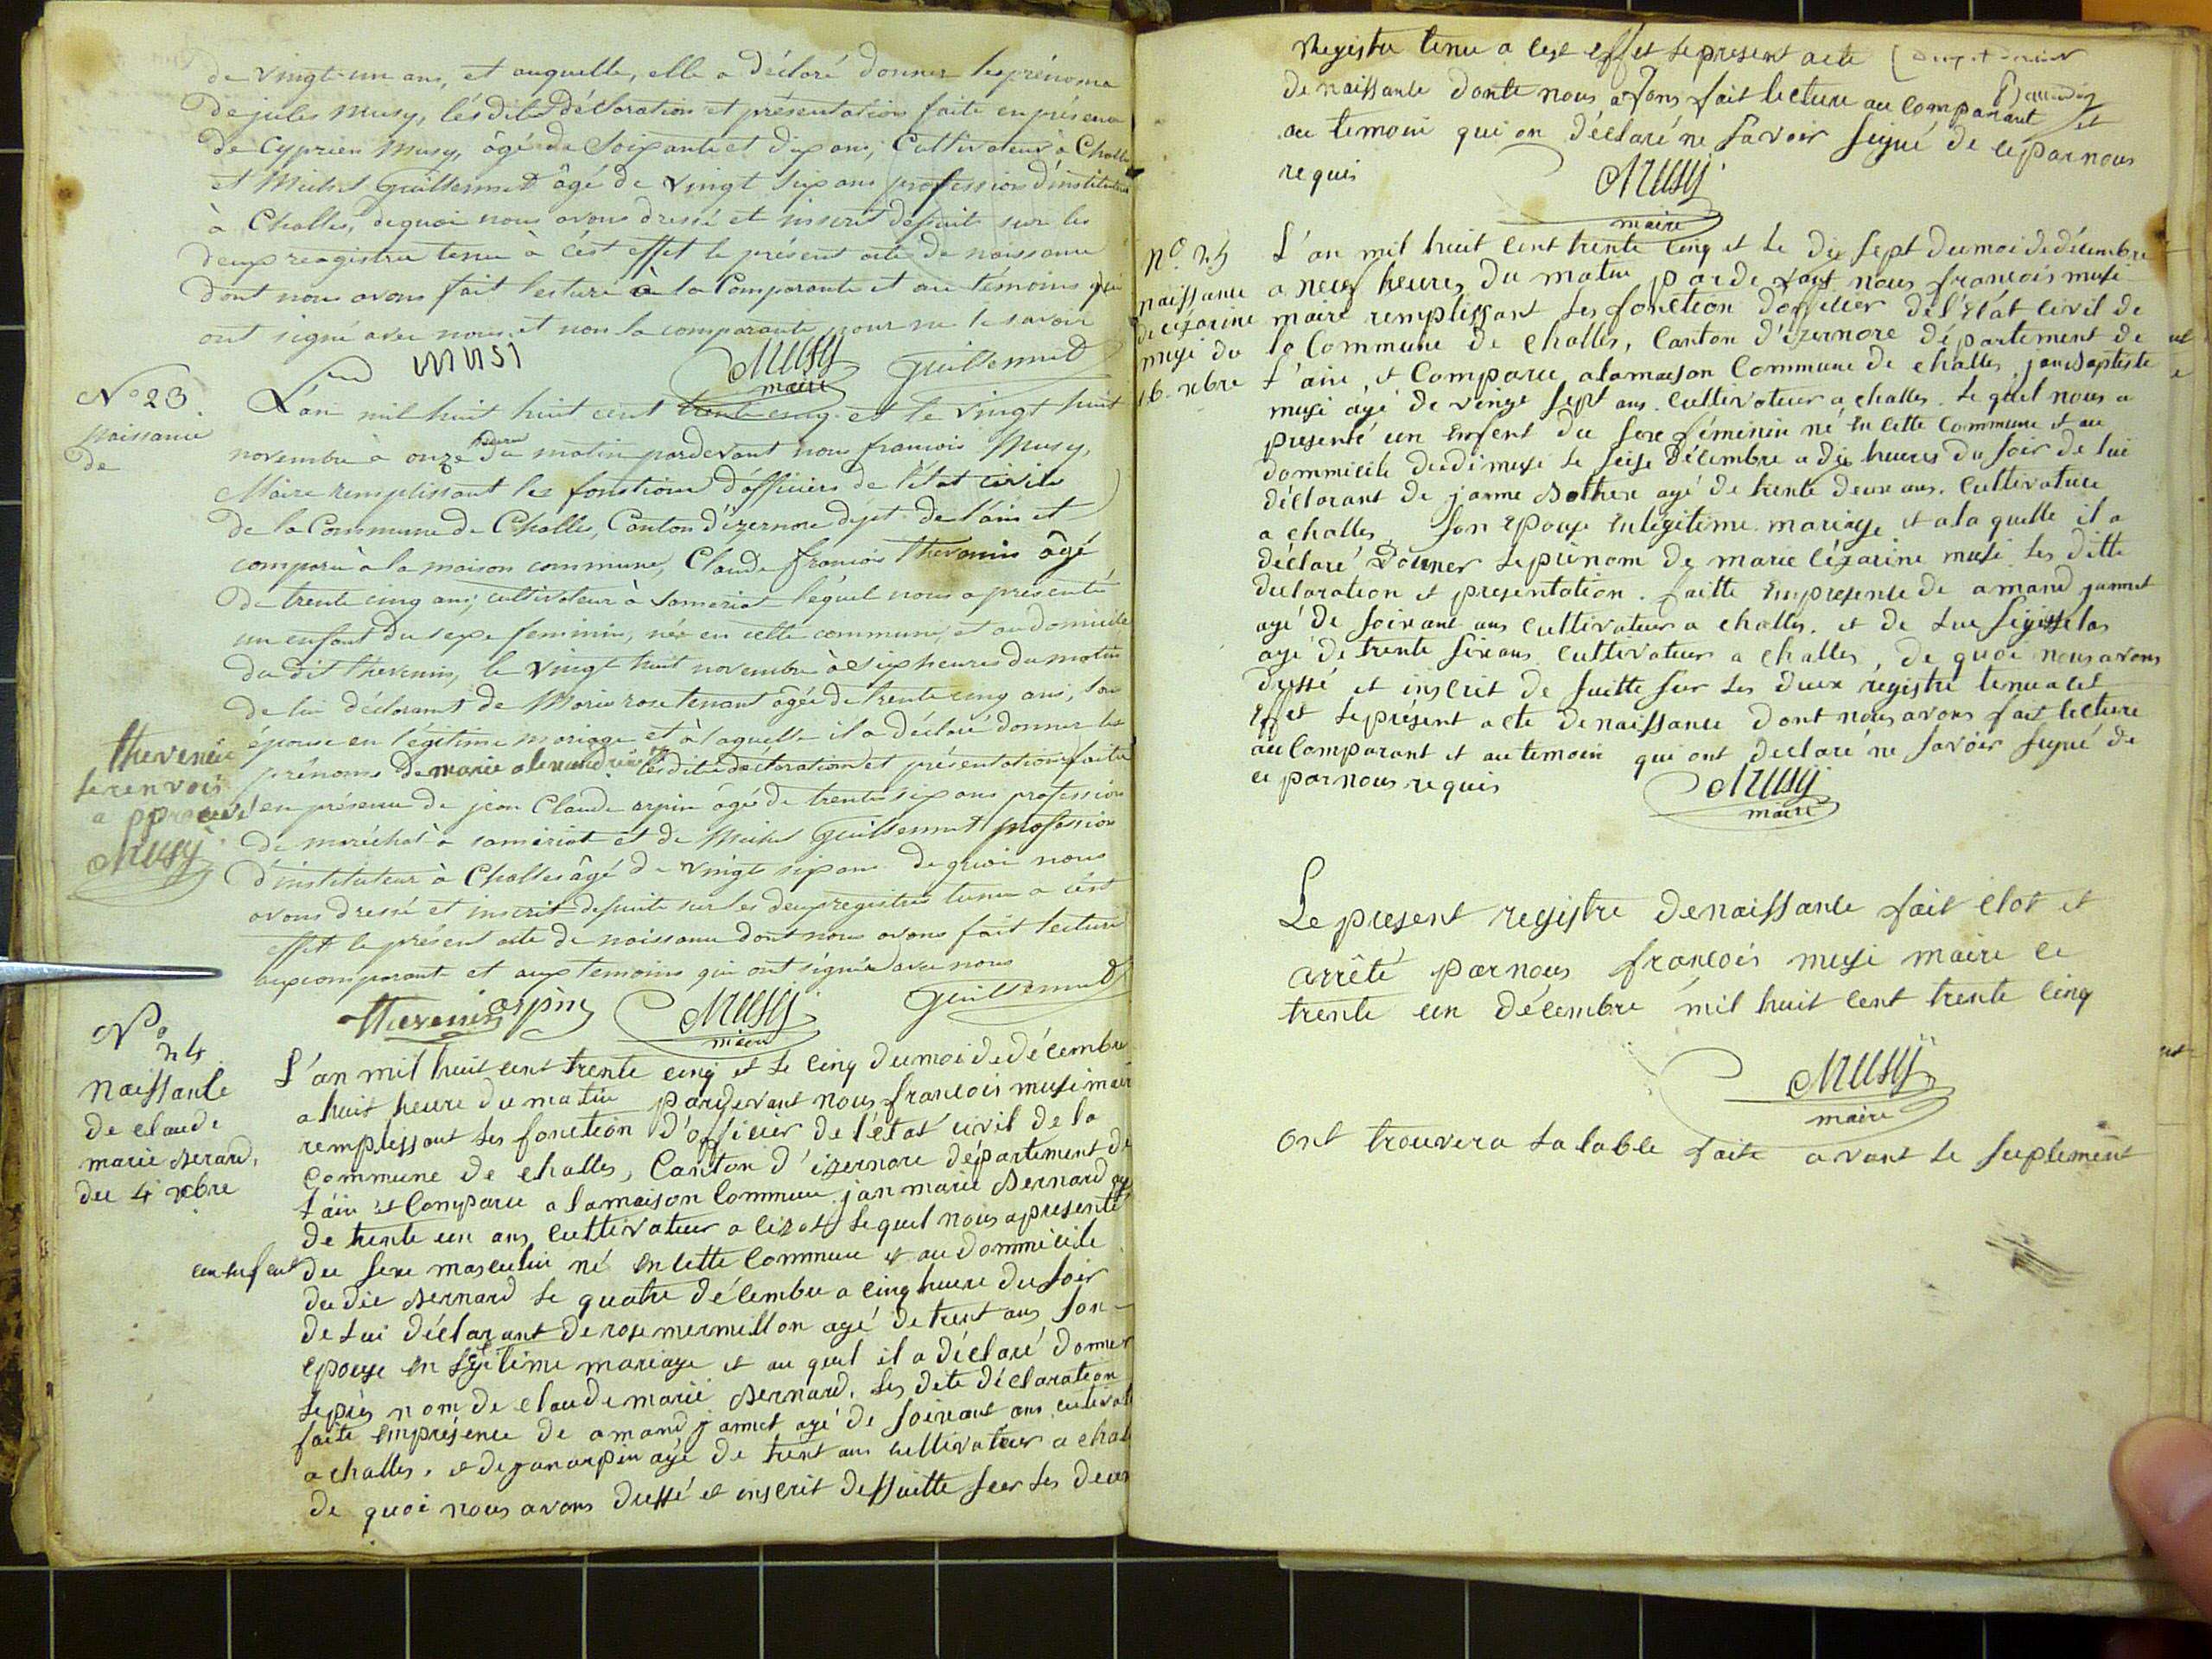 de vingt-un ans, et auquelle, elle a déclaré donner les prénoms
de jules Musy, lésdite déclaration et présentation faite en présence
de Cyprien Musy, âgé de Soixante et dix ans, Cultivateur à Challes
et Michel Guillermet âgé de vingt six ans profession d'instituteur
à Challes, dequoi nous avons dressé et inscrit desuite sur les
deux reagistre tenu à cést effet le présent acte de naissance
dont nous avons fait lecture à la Comparante et au témoins qui
ont signé avec nous et non la comparante pour ne le savoir
musi Musy maire Guillermet
No 23.
Naissance
de
L'an mil huit huit cent trente cinq et le vingt huit
novembre à onze heure du matin pardevant nous francois Musy,
Maire remplissant les fonctions d'officiers de l'état civile
de la Commune de Challes, Canton d'izernore dept. de l'ain et
comparu à la maison commune, Claude francois thevenin âgé
de trente cinq ans, cultivateur à Sameriat léquel nous a présenté
un enfant du sexe feminin, née en cette commune, et au domicile
du dit thevenin, le vingt huit novembre à six heures du matin
de lui déclarant de Marie rose tenant âgée de trente cinq ans, son
épouse en légitime mariage et à laquelle il a déclaré donner les
prénoms de marie alexandrine lesdite déclaration et présentation faite
thevenin
le renvois
approuvé
Musy
en présence de jean Claude arpin âgé de trente six ans profession
de maréchal à samériat et de Michel Guillermet profession
d'instituteur à Challes âgé de vingt six ans de quoi nous
avons dressé et inscrit desuite sur les deux registres tenu a cést
effet le présent acte de naissance dont nous avons fait lecture
aux comparante et aux temoins qui ont signée avec nous
thevenin arpin Musy maire Guillermet
No
24
Naissance
de claude
marie Berard,
du 4 xbre
L'an mil huit cent trente cinq et le cinq du moi de décembre
a huit heure du matin pardevant nous francois musi maire
remplissant les fonction d'officier de l'état civil de la
Commune de challes, Canton d'izernore département de
l'ain et Comparu a la maison Commune jan marie Bernard agé
de trente un ans, cultivateur a cizot lequel nous apresenté
un enfent du sexe masculin né en cette Commune et au dommicile
du dit Bernard le quatre décembre a cinq heure du soir
de lui déclarant de rose mermillon agé de trent ans son
epouse en légitime mariage et au quel il a déclaré donner
le près nom de claude marie Bernard. les dite déclaration
faite enprésence de amand janet agé de soixant ans cultivat
a challes. et de jan arpin agé de trent ans cultivateur a chal
de quoi nous avons dressé et inscrit dessuitte sur les deux
registre tenu a cest effet le present acte
de naissance donte nous avons fait lecture au Comparant et
au temoin qui on déclaré ne savoir signé de ce par nous
requis Musy maire
no. 25
naissance
de cézarine
musi du
16. xbre
L'an mil huit cent trente cinq et le dix sept du moi de décembre
a neuf heures du matin par de vant nous francois musi
maire remplissant les fonction d'officier de l'état civil de
la Commune de challes, Canton d'izernore département de
l'ain, et Comparu a la maison Commune de challes, jan Baptiste
musi agé de vingt sept ans. Cultivateur a challes. le quel nous a
presenté un enfent du sexe féminin né en cette Commune et au
dommicile du di musi le seise décembre a dix heures du soir de lui
déclarant de janne Bothier agé de trente deux ans. Cultivatrice
a challes, son epouse en legitime mariage et a la quelle il a
déclaré donner le prénom de marie cézarine musi les ditte
declaration et presentation. faitte enpresense de amand jannet
agé de soixant ans cultivateur a challes. et de
agé de trente six ans cultivateur a challes, de quoi nous avons
dressé et inscrit de suitte sur les deux registre tenu a cet
effet le présent acte de naissance dont nous avons fait lecture
au Comparant et au temoin qui ont declaré ne savoir signé de
ce par nous requis Musy maire
Le present registre de naissance fait clot et
arrêté par nous francois musi maire ce
trente un décembre mil huit cent trente cinq
Musy maire
ont trouvera la table faite avant le suplement